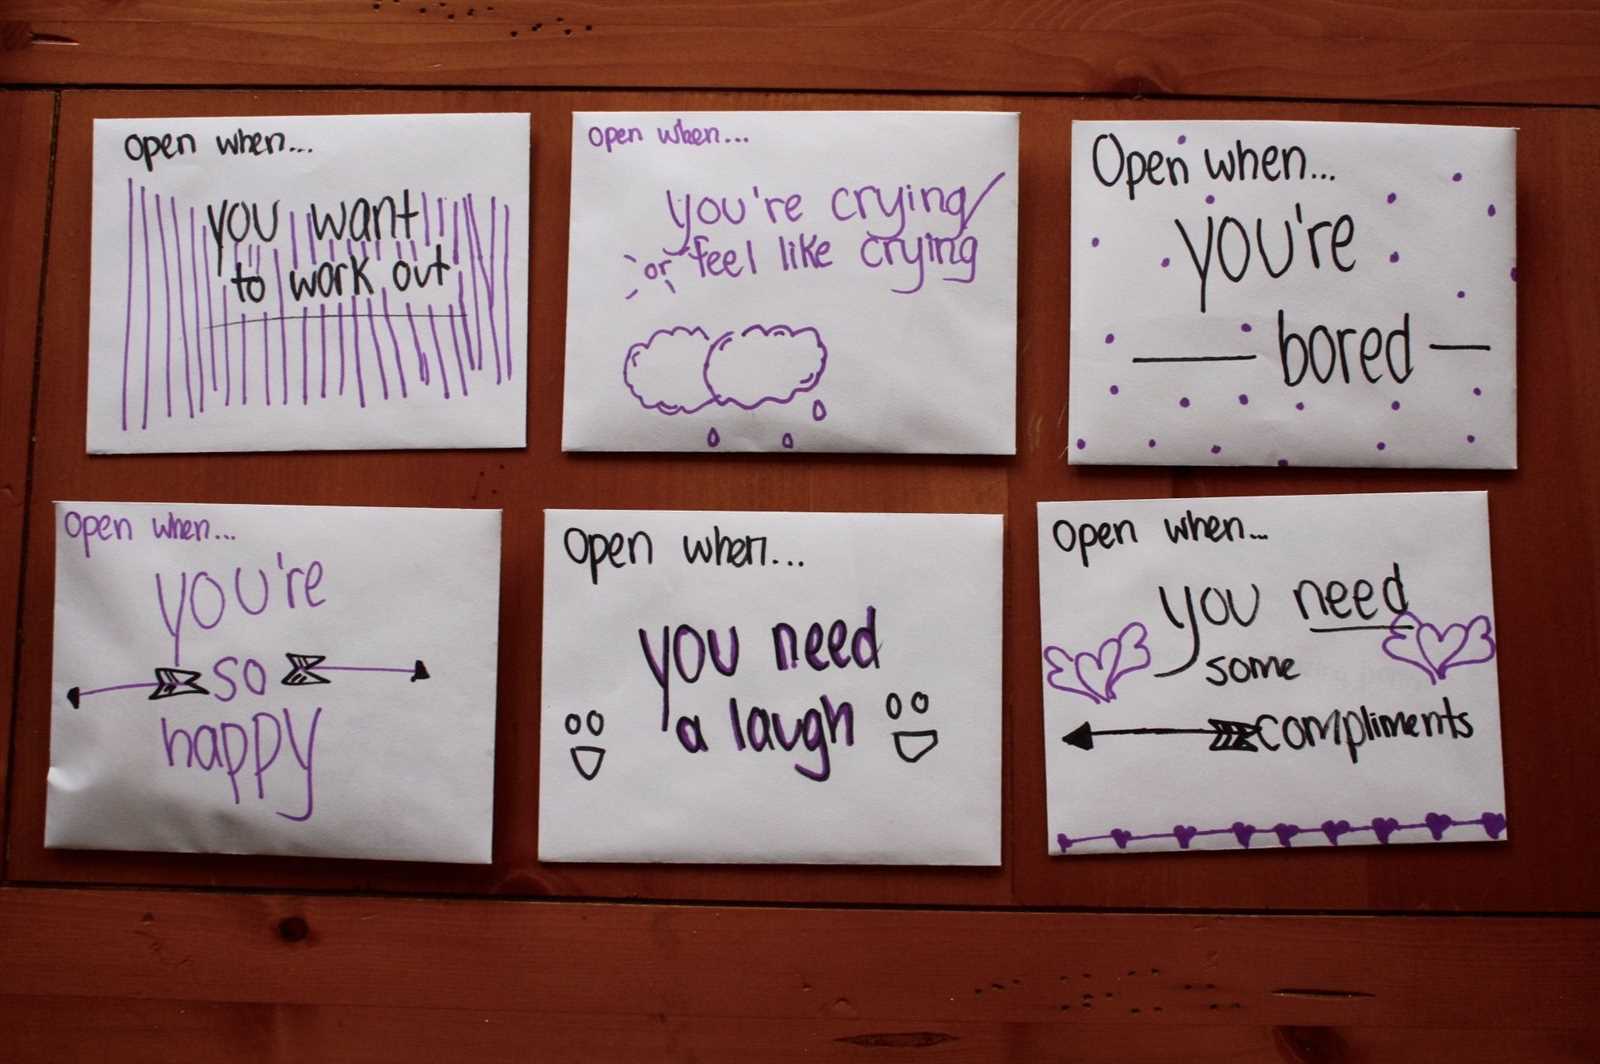 Open when...
you want
to work out
Open when...
you're crying/
or feel like crying
Open when...
you're
bored
Open when...
you're
so
happy
Open when...
you need
a laugh
Open when...
you need
some
compliments